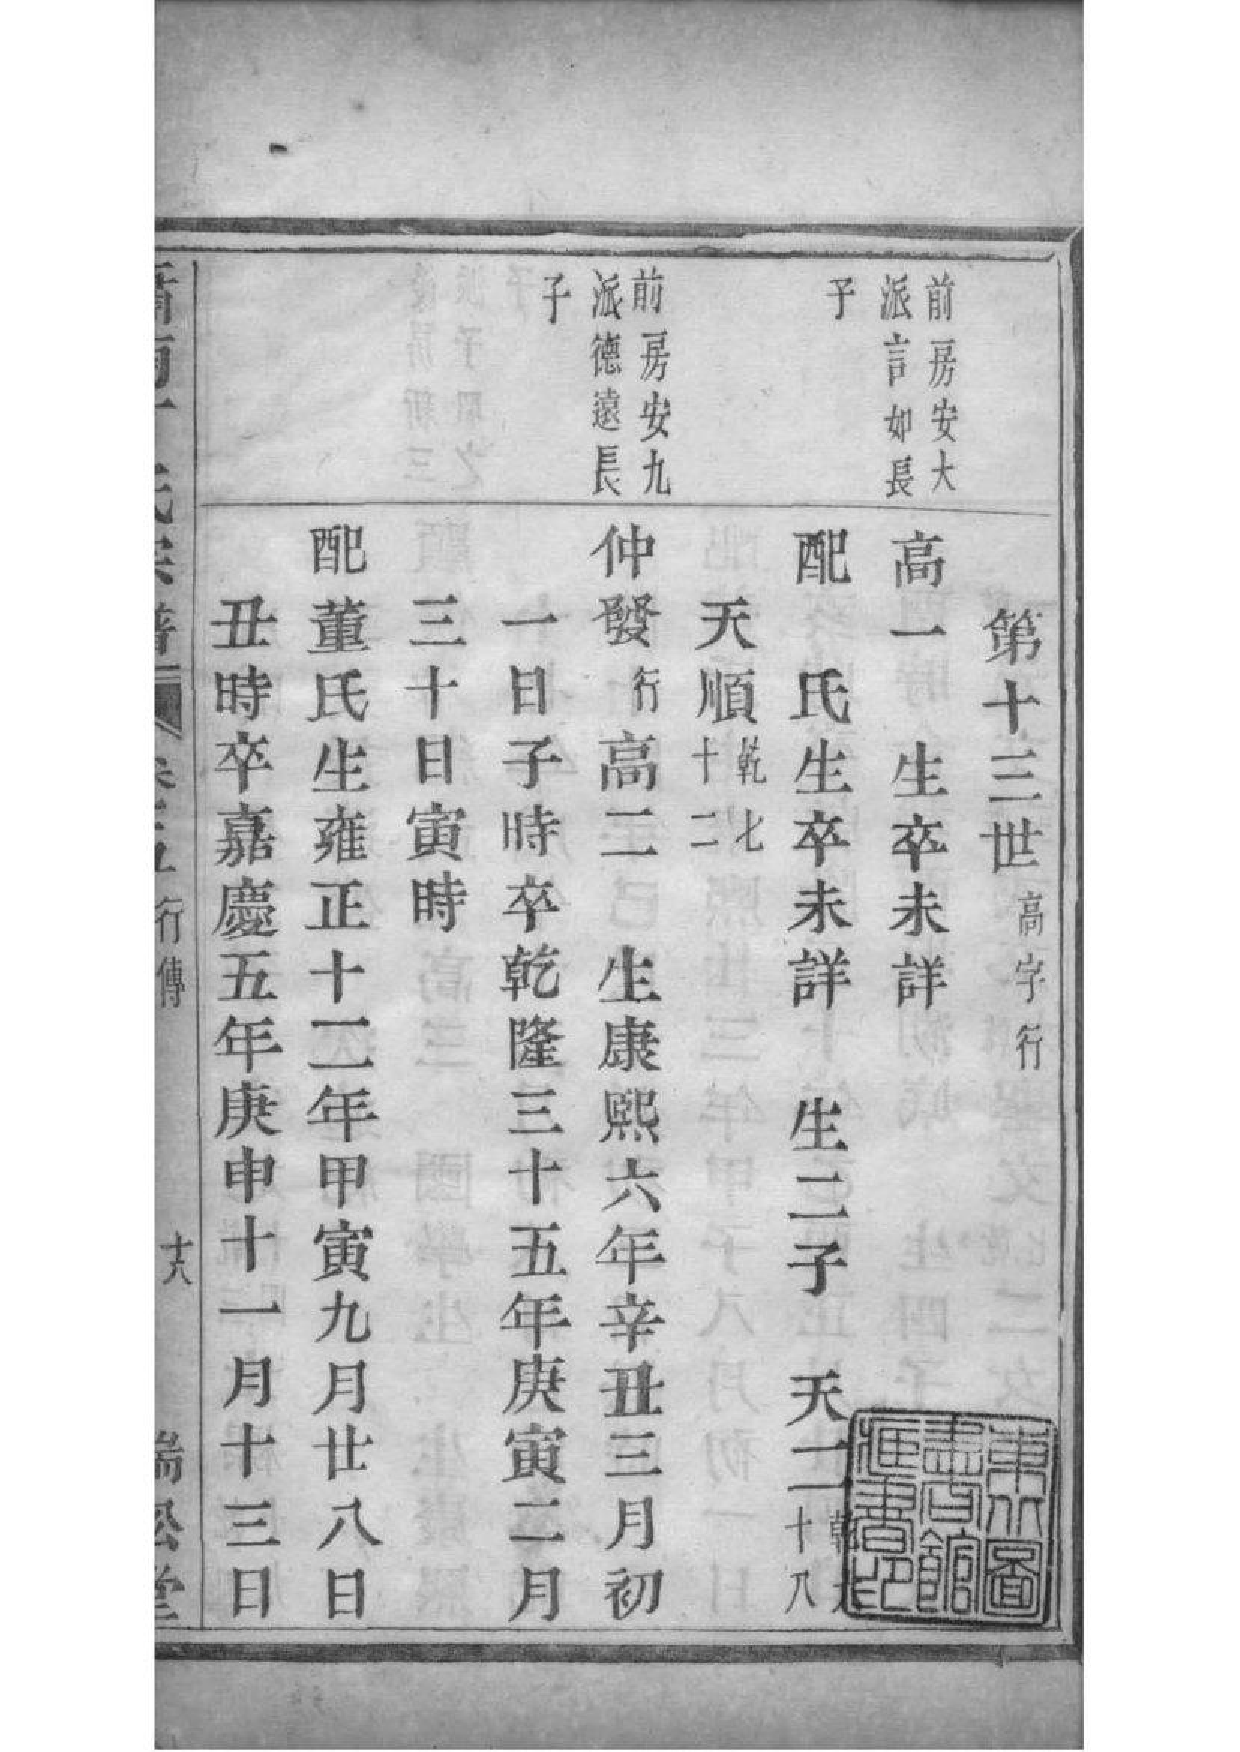 第十三世高字行
前房安大
派言如長
子
高一　生卒未詳
配　氏生卒未詳　生二子　天一
十八
天順乾七
十二
前房安九
派德遠長
子
仲發行高二　生康熙六年辛丑三月初
一日子時卒乾隆三十五年庚寅二月
三十日寅時
配董氏生雍正十二年甲寅九月廿八日
丑時卒嘉慶五年庚申十一月十三日
氏宗譜
卷五
行傳
十八
瑞松堂